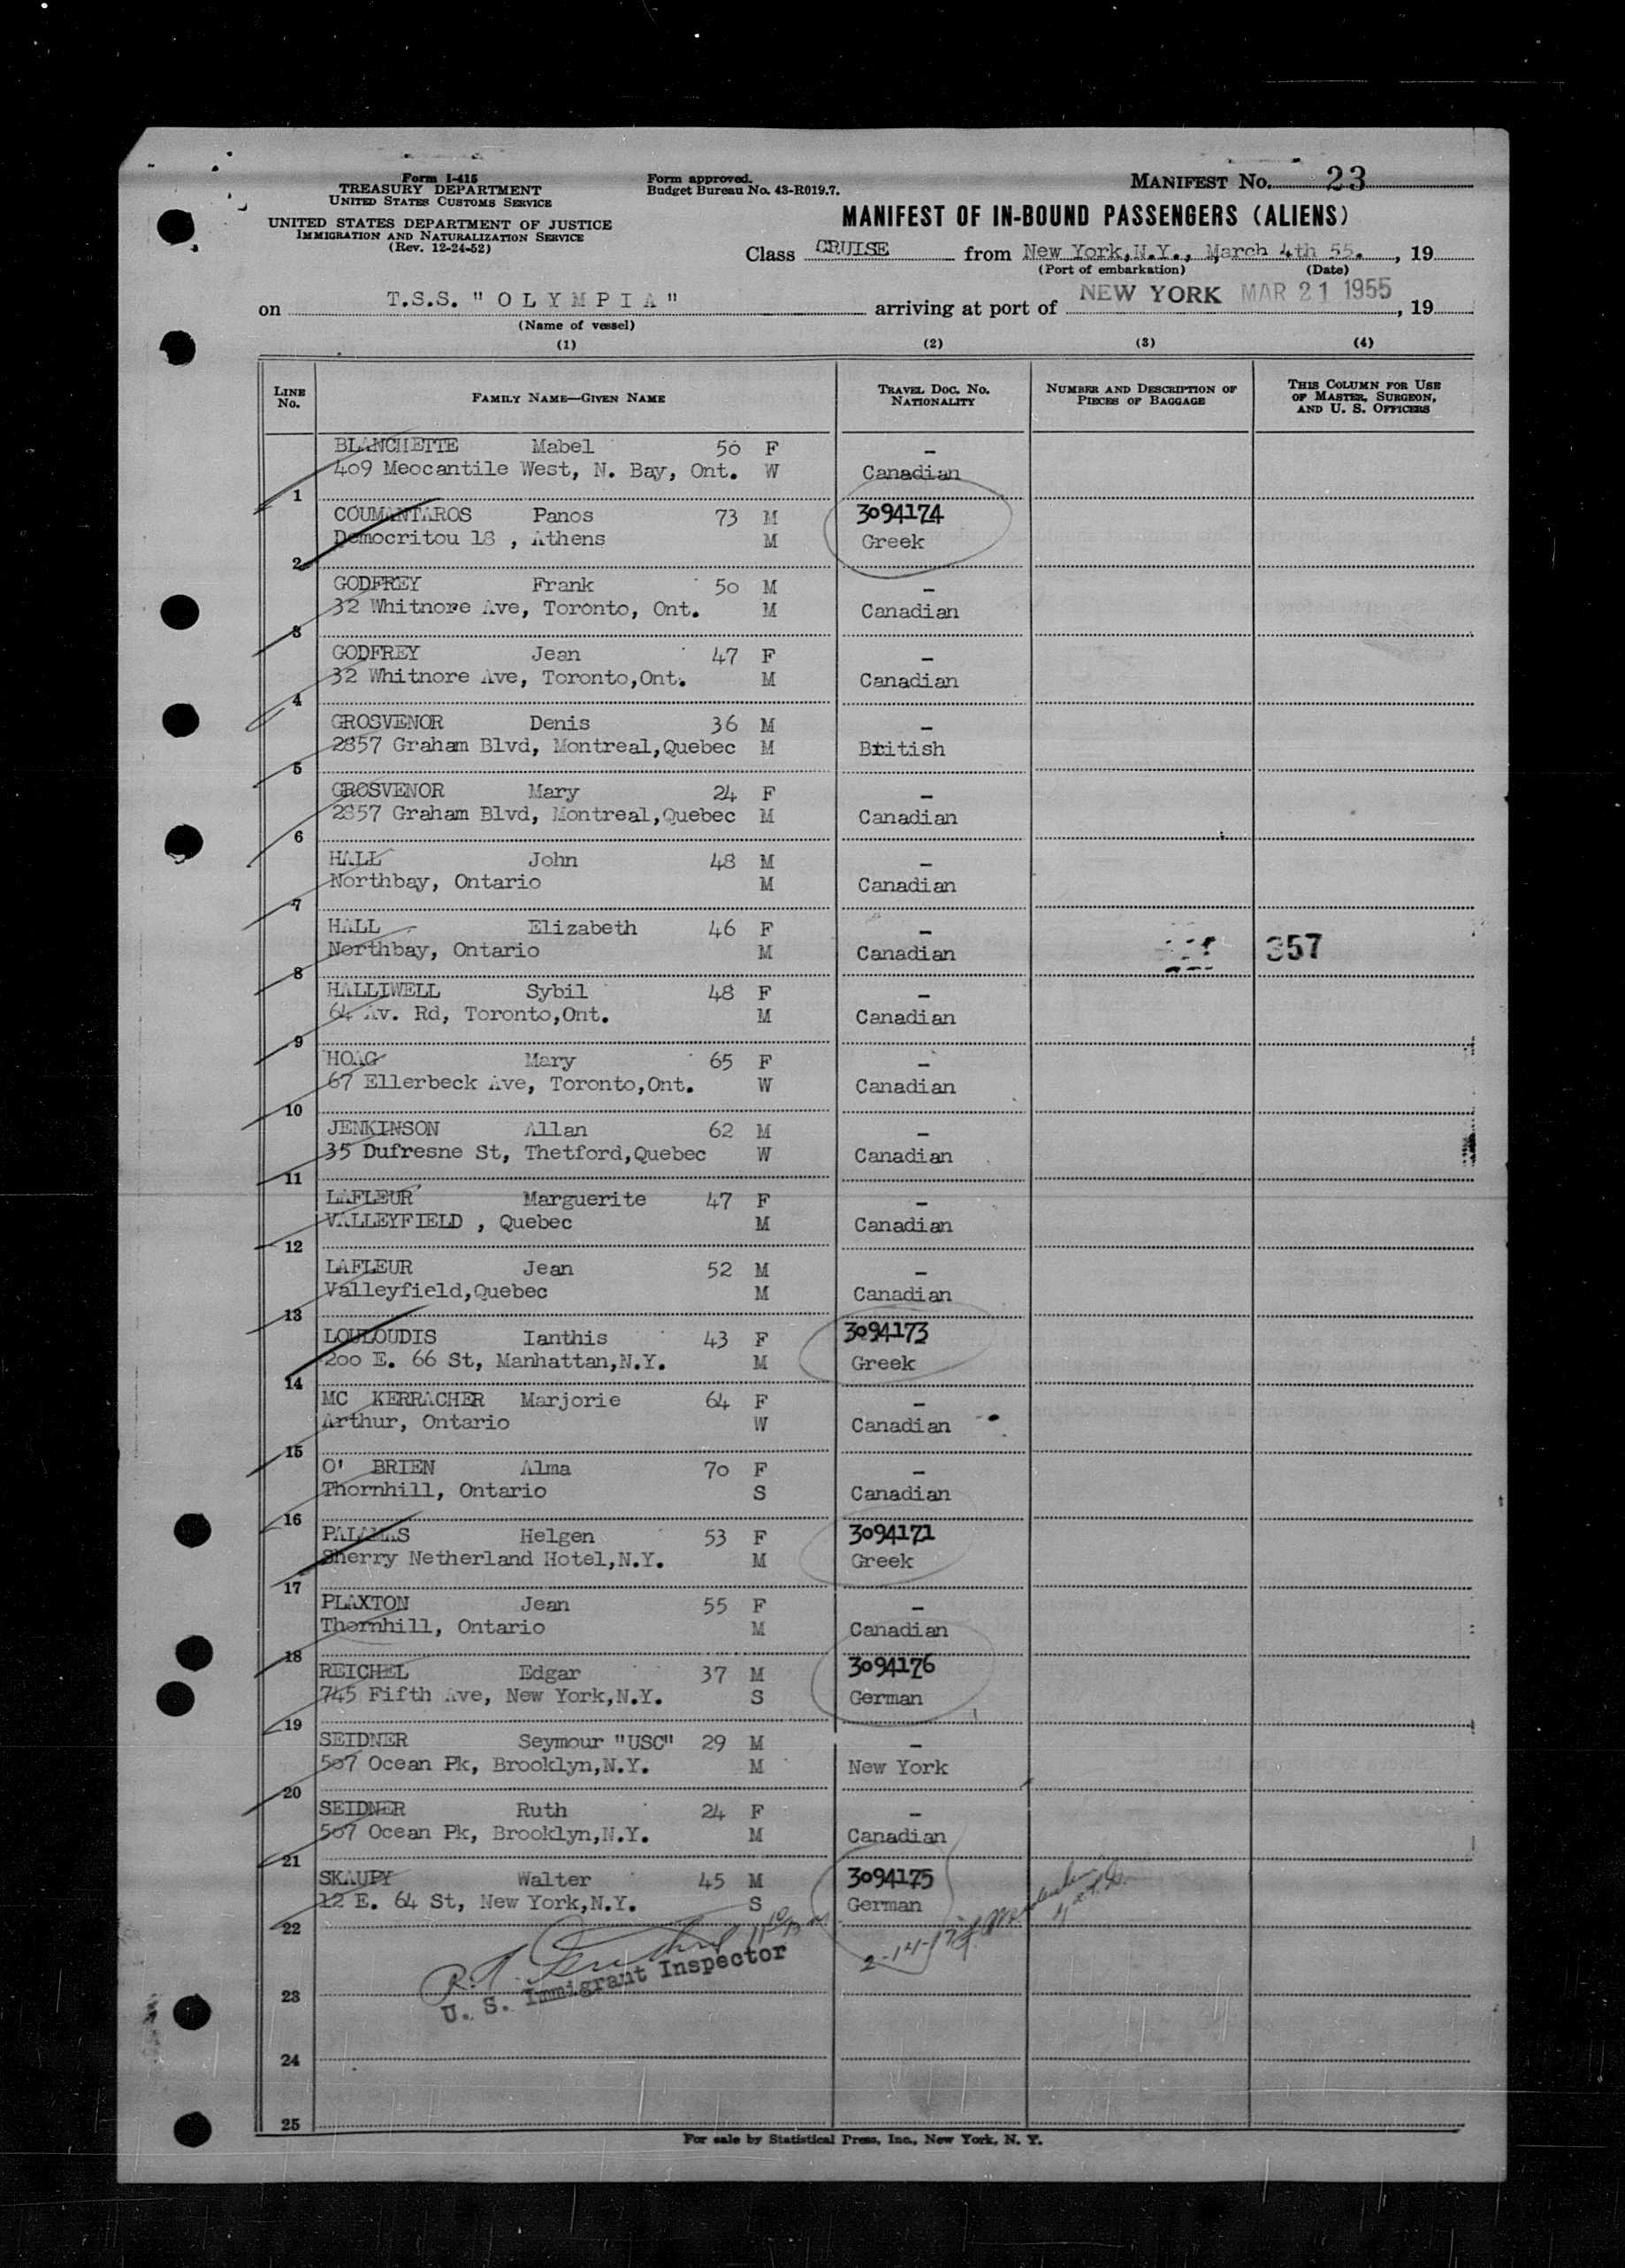 Form I-415
TREASURY DEPARTMENT
UNITED STATES CUSTOMS SERVICE
UNITED STATES DEPARTMENT OF JUSTICE
IMMIGRATION AND NATURALIZATION SERVICE
(Rev. 12-24-52)
Form approved.
Budget Bureau No. 43-R019.7.
MANIFEST NO. 23
MANIFEST OF IN-BOUND PASSENGERS (ALIENS)
Class CRUISE from New York, N.Y., March 4th 55. , 19
(Port of embarkation) (Date)
on T.S.S. "OLYMPIA" arriving at port of NEW YORK MAR 21 1955 , 19
(Name of vessel)
(1) (2) (3) (4)
LINE NO. FAMILY NAME—GIVEN NAME TRAVEL DOC. NO. NATIONALITY NUMBER AND DESCRIPTION OF PIECES OF BAGGAGE THIS COLUMN FOR USE OF MASTER, SURGEON, AND U. S. OFFICERS
BLANCHETTE Mabel 50 F –
409 Meocantile West, N. Bay, Ont. W Canadian
1
COUMANTAROS Panos 73 M 3094174
Democritou 18 , Athens M Greek
2
GODFREY Frank 50 M –
32 Whitnore Ave, Toronto, Ont. M Canadian
3
GODFREY Jean 47 F –
32 Whitnore Ave, Toronto,Ont. M Canadian
4
GROSVENOR Denis 36 M –
2857 Graham Blvd, Montreal,Quebec M British
5
GROSVENOR Mary 24 F –
2857 Graham Blvd, Montreal,Quebec M Canadian
6
HALL John 48 M –
Northbay, Ontario M Canadian
7
HALL Elizabeth 46 F –
Northbay, Ontario M Canadian 357
8
HALLIWELL Sybil 48 F –
64 Av. Rd, Toronto,Ont. M Canadian
9
HOAG Mary 65 F –
67 Ellerbeck Ave, Toronto,Ont. W Canadian
10
JENKINSON Allan 62 M –
35 Dufresne St, Thetford,Quebec W Canadian
11
LAFLEUR Marguerite 47 F –
VALLEYFIELD , Quebec M Canadian
12
LAFLEUR Jean 52 M –
Valleyfield,Quebec M Canadian
13
LOULOUDIS Ianthis 43 F 3094173
200 E. 66 St, Manhattan,N.Y. M Greek
14
MC KERRACHER Marjorie 64 F –
Arthur, Ontario W Canadian
15
O' BRIEN Alma 70 F –
Thornhill, Ontario S Canadian
16
PALAMAS Helgen 53 F 3094171
Sherry Netherland Hotel,N.Y. M Greek
17
PLAXTON Jean 55 F –
Thornhill, Ontario M Canadian
18
REICHEL Edgar 37 M 3094176
745 Fifth Ave, New York,N.Y. S German
19
SEIDNER Seymour "USC" 29 M –
507 Ocean Pk, Brooklyn,N.Y. M New York
20
SEIDNER Ruth 24 F –
507 Ocean Pk, Brooklyn,N.Y. M Canadian
21
SKAUPY Walter 45 M 3094175
12 E. 64 St, New York,N.Y. S German
22
U. S. Immigrant Inspector
23
24
25
For sale by Statistical Press, Inc., New York, N. Y.